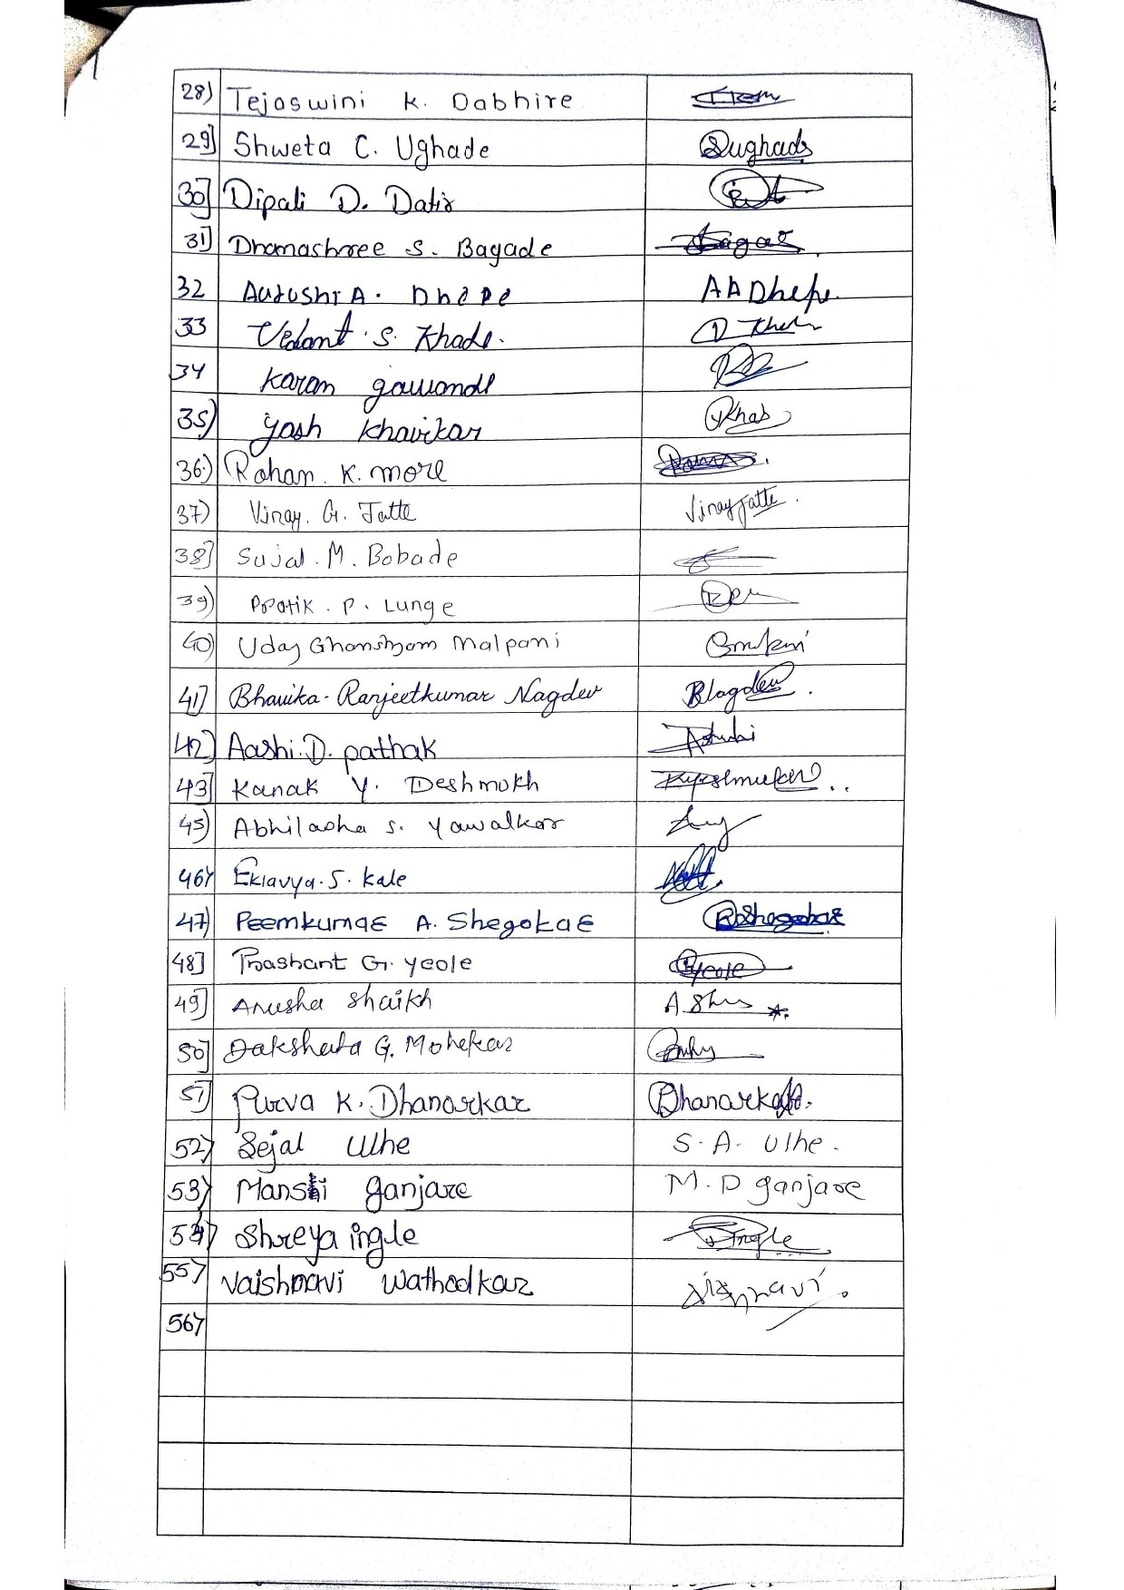 28) Tejaswini K. Dabhire
29] Shweta C. Ughade Sughade
30] Dipali D. Datir
31] Dhanashree S. Bagade
32 Aarushi A. Dhepe AADhepe
33 Vedant S. Khade.
34 Karan gawande
35) Yash Khavikar
36) Rohan K. more
37) Vinay. G. Jatte Vinay Jatte
38] Sujal. M. Bobade
39) Pratik. P. Lunge
40) Uday Ghanshyam Malpani
41] Bhavika Ranjeetkumar Nagdev
42] Aashi. D. pathak
43] Kanak Y. Deshmukh
45) Abhilasha S. Yawalkar
46) Eklavya. S. Kale
47) Peemkumae A. Shegokae
48] Prashant G. Yeole Yeole
49] Anusha Shaikh
50] Daksheta G. Mohekar
51] Purva K. Dhanorkar
52) Sejal Ulhe S. A. Ulhe.
53) Mansi ganjare M. D ganjare
54) Shreya ingle Ingle
55) Vaishnavi Wathodkar
56)